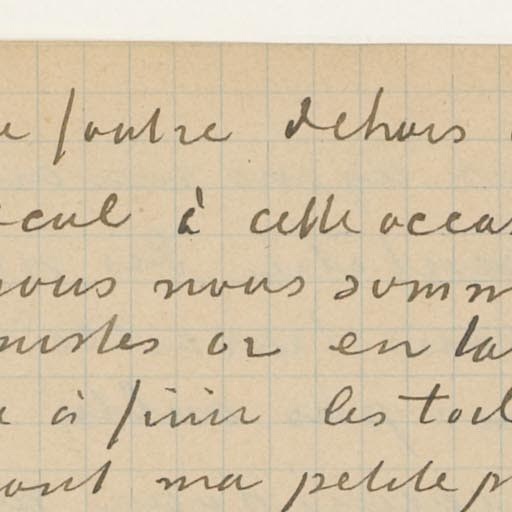 e foutre dehors
cul à cette occas
nous nous somm
nistes or en la
à finir les toil
ont ma petite p